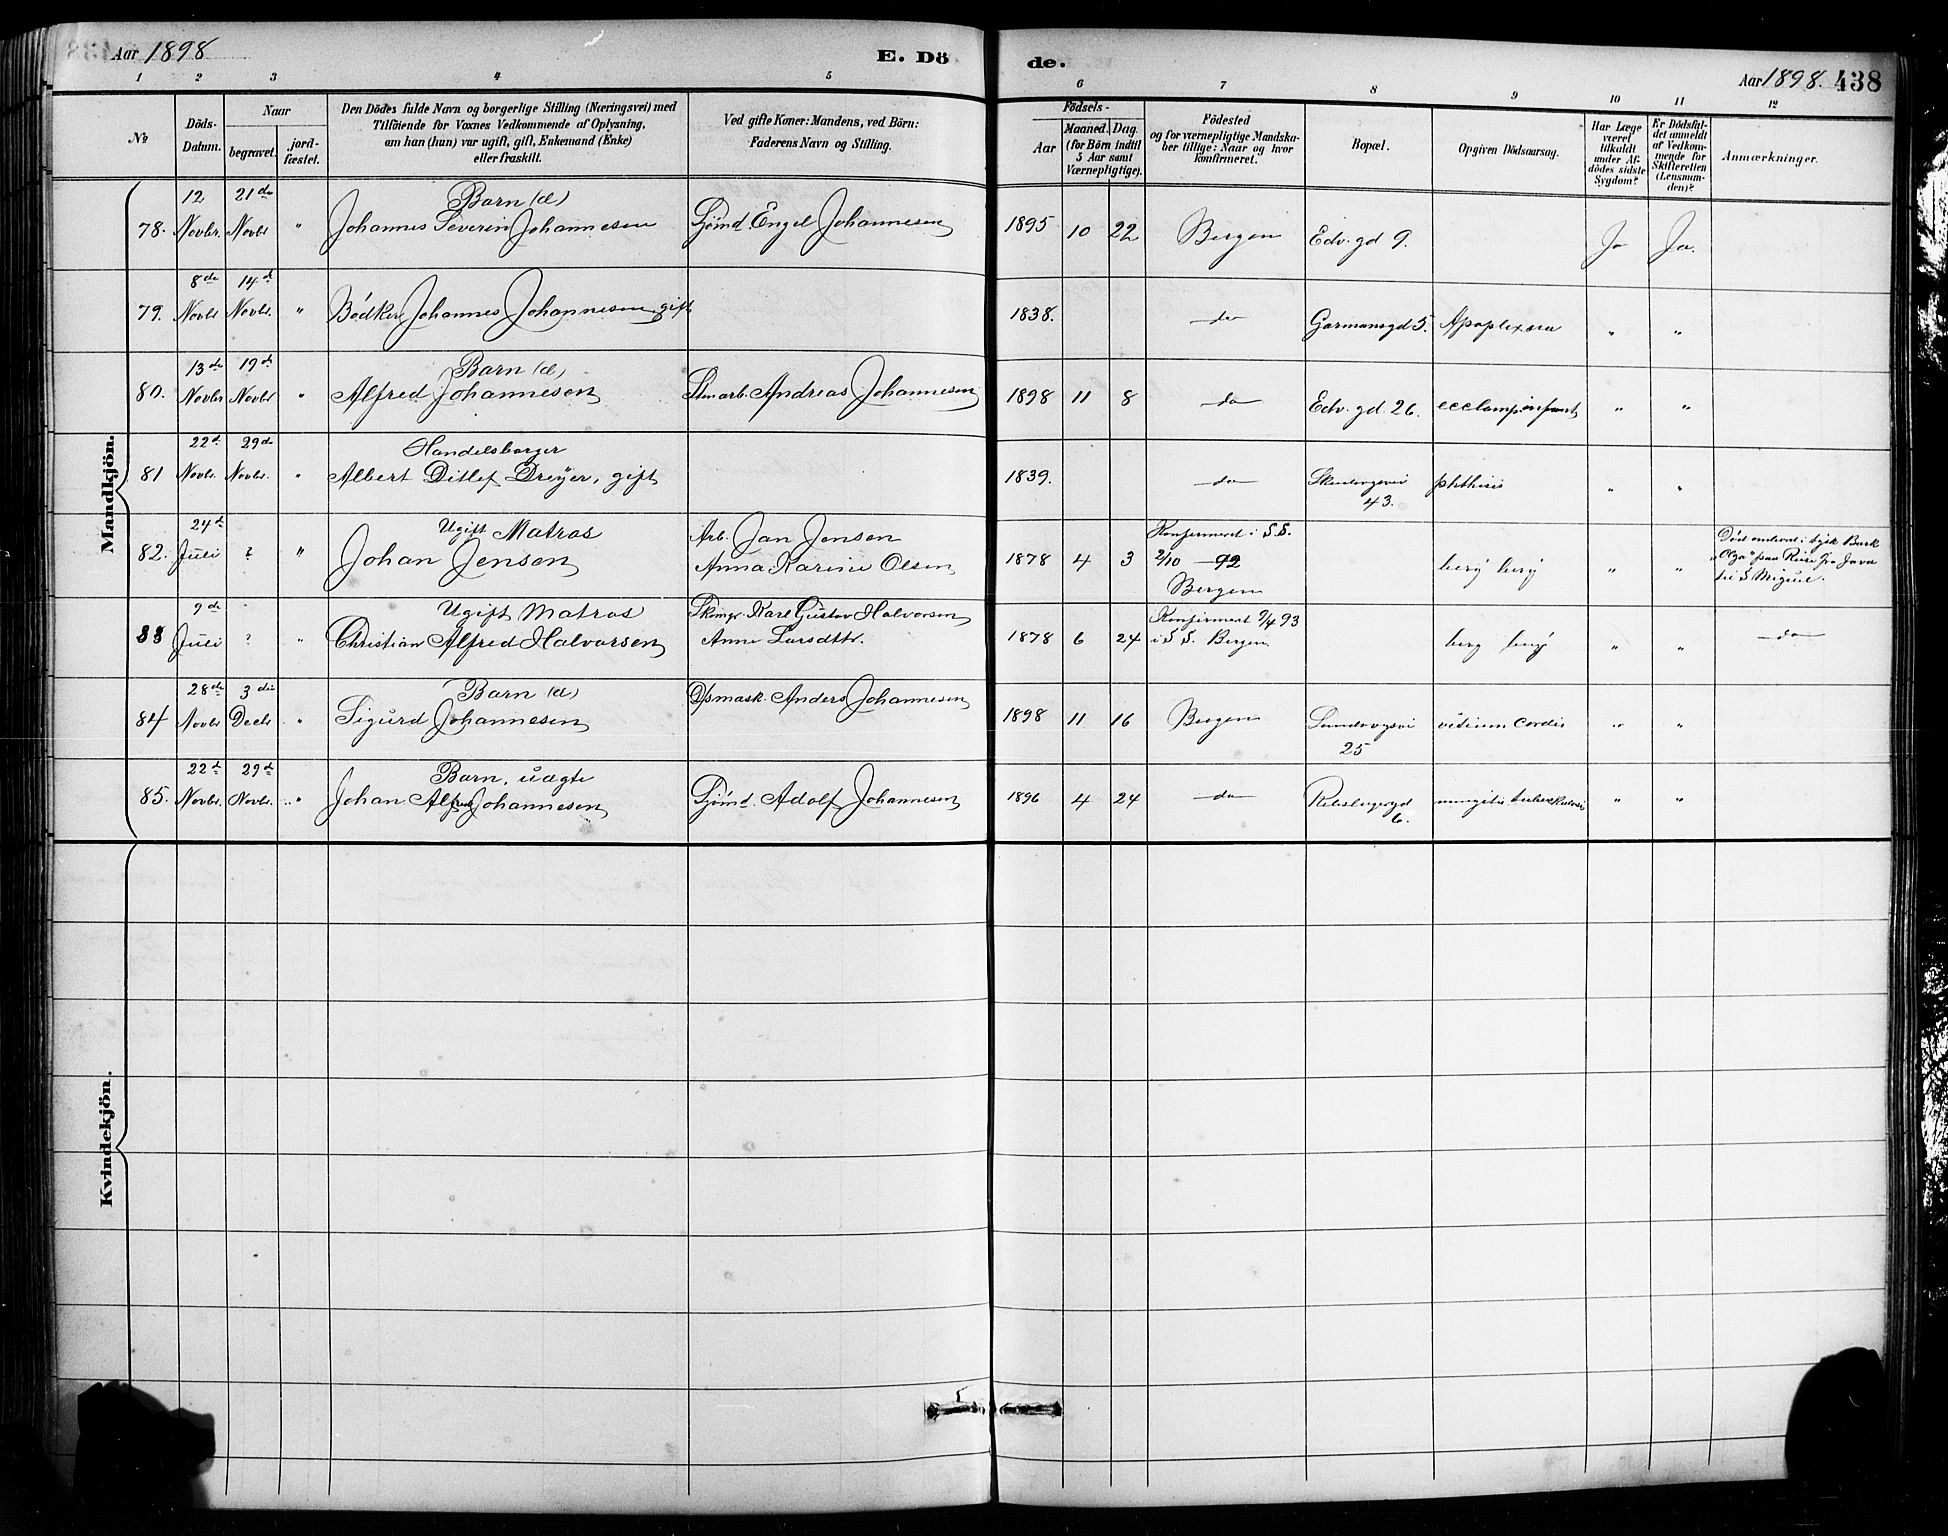 Aar 1898
E. Dö
de.
Aar 1898. 438
1 2 3 4 5 6 7 8 9 10 11 12
No
Döds-
Datum.
Naar
begravet.
jord-
fæstet.
Den Dödes fulde Navn og borgerlige Stilling (Næringsvei) med
Tilföiende for Voxnes Vedkommende af Oplysning,
om han (hun) var ugift, gift, Enkemand (Enke)
eller fraskilt.
Ved gifte Koner: Mandens, ved Börn:
Faderens Navn og Stilling.
Födsels-
Aar
Maaned. Dag.
(for Börn indtil
5 Aar samt
Værnepligtige).
Födested
og for værnepligtige Mandska-
ber tillige: Naar og hvor
konfirmeret.
Bopæl.
Opgiven Dödsaarsag.
Har Læge
været
tilkaldt
under Af-
dödes sidste
Sygdom?
Er Dödsfal-
det anmeldt
af Vedkom-
mende for
Skifteretten
(Lensman-
den)?
Anmærkninger.
Mandkjön.
78. 12 Novbr. 21de Novbr " Barn (æ) Johannes Severin Johannesen Sjömd. Engel Johannesen 1895 10 22 Bergen Edv. gd 9. Ja Ja.
79. 8de Novbr 14d Novbr. " Bödker Johannes Johannesen gift 1838. do Garmansgd 5. Apoplexia " "
80. 13de Novbr 19d Novbr " Barn (æ) Alfred Johannesen Andreas Johannesen 1898 11 8 do Edv. gd 26. " "
81 22d Novbr. 29d Novbr. " Handelsborger Albert Ditlef Dreÿer, gift 1839. do 43. phthisis " "
82. 24d Juli ? " Ugift Matros
Johan Jensen
Arb. Jan Jensen
Anna Karine Olsen
1878 4 3
Konfirmeret i S.S.
2/10 92
Bergen
berÿ berÿ " "
Död ombord i tysk Bark
"Olga" paa Reise fra Java
til S Miguel.
83 9d Juli ? " Ugift Matros
Christian Alfred Halvorsen
Karl Gustav Halvorsen
Anne Larsdttr.
1878 6 24
Konfirmeret 9/4 93
i S.S. Bergen
berÿ berÿ " " do
84 28de Novbr 3die Decbr " Barn (æ) Sigurd Johannesen Anders Johannesen 1898 11 16 Bergen 25 vitium cordis " "
85. 22d Novbr. 29d Novbr. " Barn, uægte Johan Alfred Johannesen Sjömd. Adolf Johannesen 1896 4 24 do 6. " "
Kvindekjön.